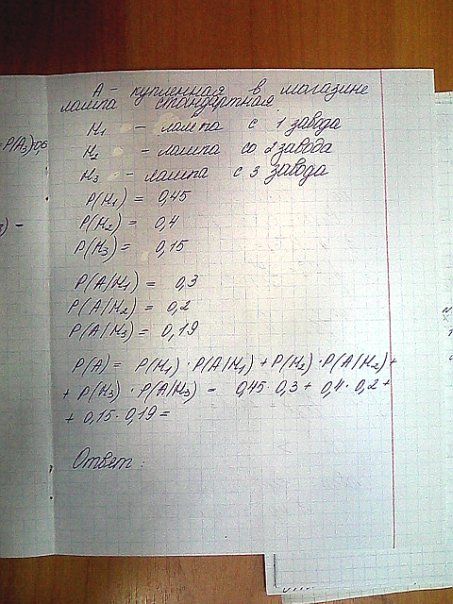 А - купленная в магазине
лампа стандартная
H₁ - лампа с 1 завода
H₂ - лампа со 2 завода
H₃ - лампа с 3 завода
P(H₁) = 0,45
P(H₂) = 0,4
P(H₃) = 0,15
P(A|H₁) = 0,3
P(A|H₂) = 0,2
P(A|H₃) = 0,19
P(A) = P(H₁) · P(A|H₁) + P(H₂) · P(A|H₂) +
+ P(H₃) · P(A|H₃) = 0,45 · 0,3 + 0,4 · 0,2 +
+ 0,15 · 0,19 =
Ответ: